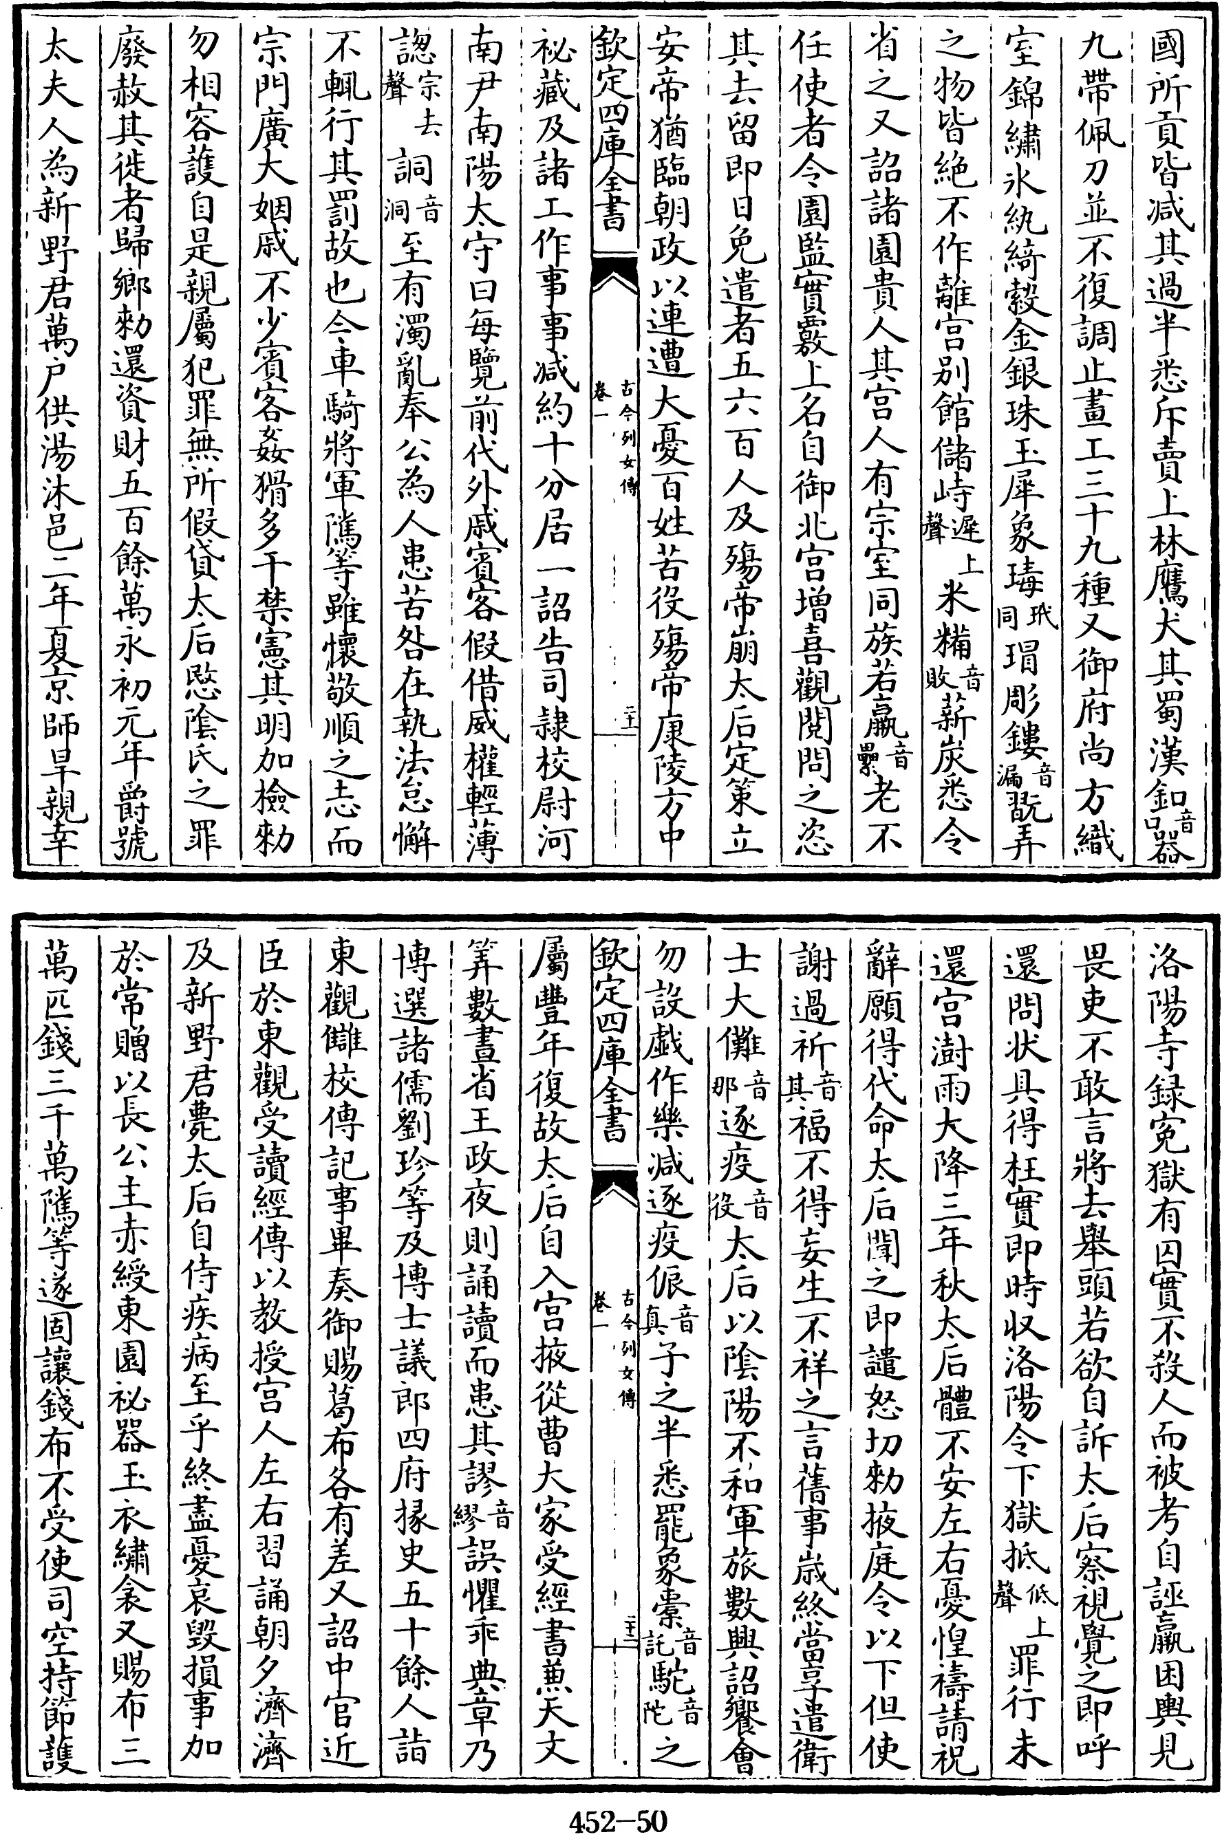 國所貢皆減其過半悉斥賣上林鷹犬其蜀漢釦音口器
九帶佩刀並不復調止畫工三十九種又御府尚方織
室錦繡氷紈綺縠金銀珠玉犀象瑇玳同瑁彫鏤音漏翫弄
之物皆絶不作離宫别館儲峙遲上聲米糒音敗薪炭悉令
省之又詔諸園貴人其宫人有宗室同族若羸音纍老不
任使者令園監實覈上名自御北宫增喜觀閲問之恣
其去留即日免遣者五六百人及殤帝崩太后定策立
安帝猶臨朝政以連遭大憂百姓苦役殤帝康陵方中
欽定四庫全書
古今列女傳
卷一
二十一
祕藏及諸工作事事減約十分居一詔告司隸校尉河
南尹南陽太守曰每覽前代外戚賓客假借威權輕薄
諰宗去聲詷音洞至有濁亂奉公為人患苦咎在執法怠懈
不輒行其罰故也今車騎將軍隲等雖懷敬順之志而
宗門廣大姻戚不少賓客姦猾多干禁憲其明加檢勅
勿相容護自是親屬犯罪無所假貸太后愍隂氏之罪
廢赦其徙者歸鄉勅還資財五百餘萬永初元年爵號
太夫人為新野君萬户供湯沐邑二年夏京師旱親幸
洛陽寺録寃獄有囚實不殺人而被考自誣羸困輿見
畏吏不敢言將去舉頭若欲自訴太后察視覺之即呼
還問狀具得枉實即時收洛陽令下獄抵低上聲罪行未
還宫澍雨大降三年秋太后體不安左右憂惶禱請祝
辭願得代命太后聞之即譴怒切勅掖庭令以下但使
謝過祈音其福不得妄生不祥之言舊事歲終當享遣衛
士大儺音那逐疫音役太后以隂陽不和軍旅數興詔饗會
勿設戯作樂減逐疫侲音真子之半悉罷象橐音託駝音陀之
欽定四庫全書
古今列女傳
卷一
二十二
屬豐年復故太后自入宫掖從曹大家受經書兼天文
筭數晝省王政夜則誦讀而患其謬音繆誤懼乖典章乃
博選諸儒劉珍等及博士議郎四府掾史五十餘人詣
東觀讎校傳記事畢奏御賜葛布各有差又詔中官近
臣於東觀受讀經傳以教授宫人左右習誦朝夕濟濟
及新野君薨太后自侍疾病至乎終盡憂哀毀損事加
於常贈以長公主赤綬東園祕器玉衣繡衾又賜布三
萬匹錢三千萬隲等遂固讓錢布不受使司空持節護
452-50